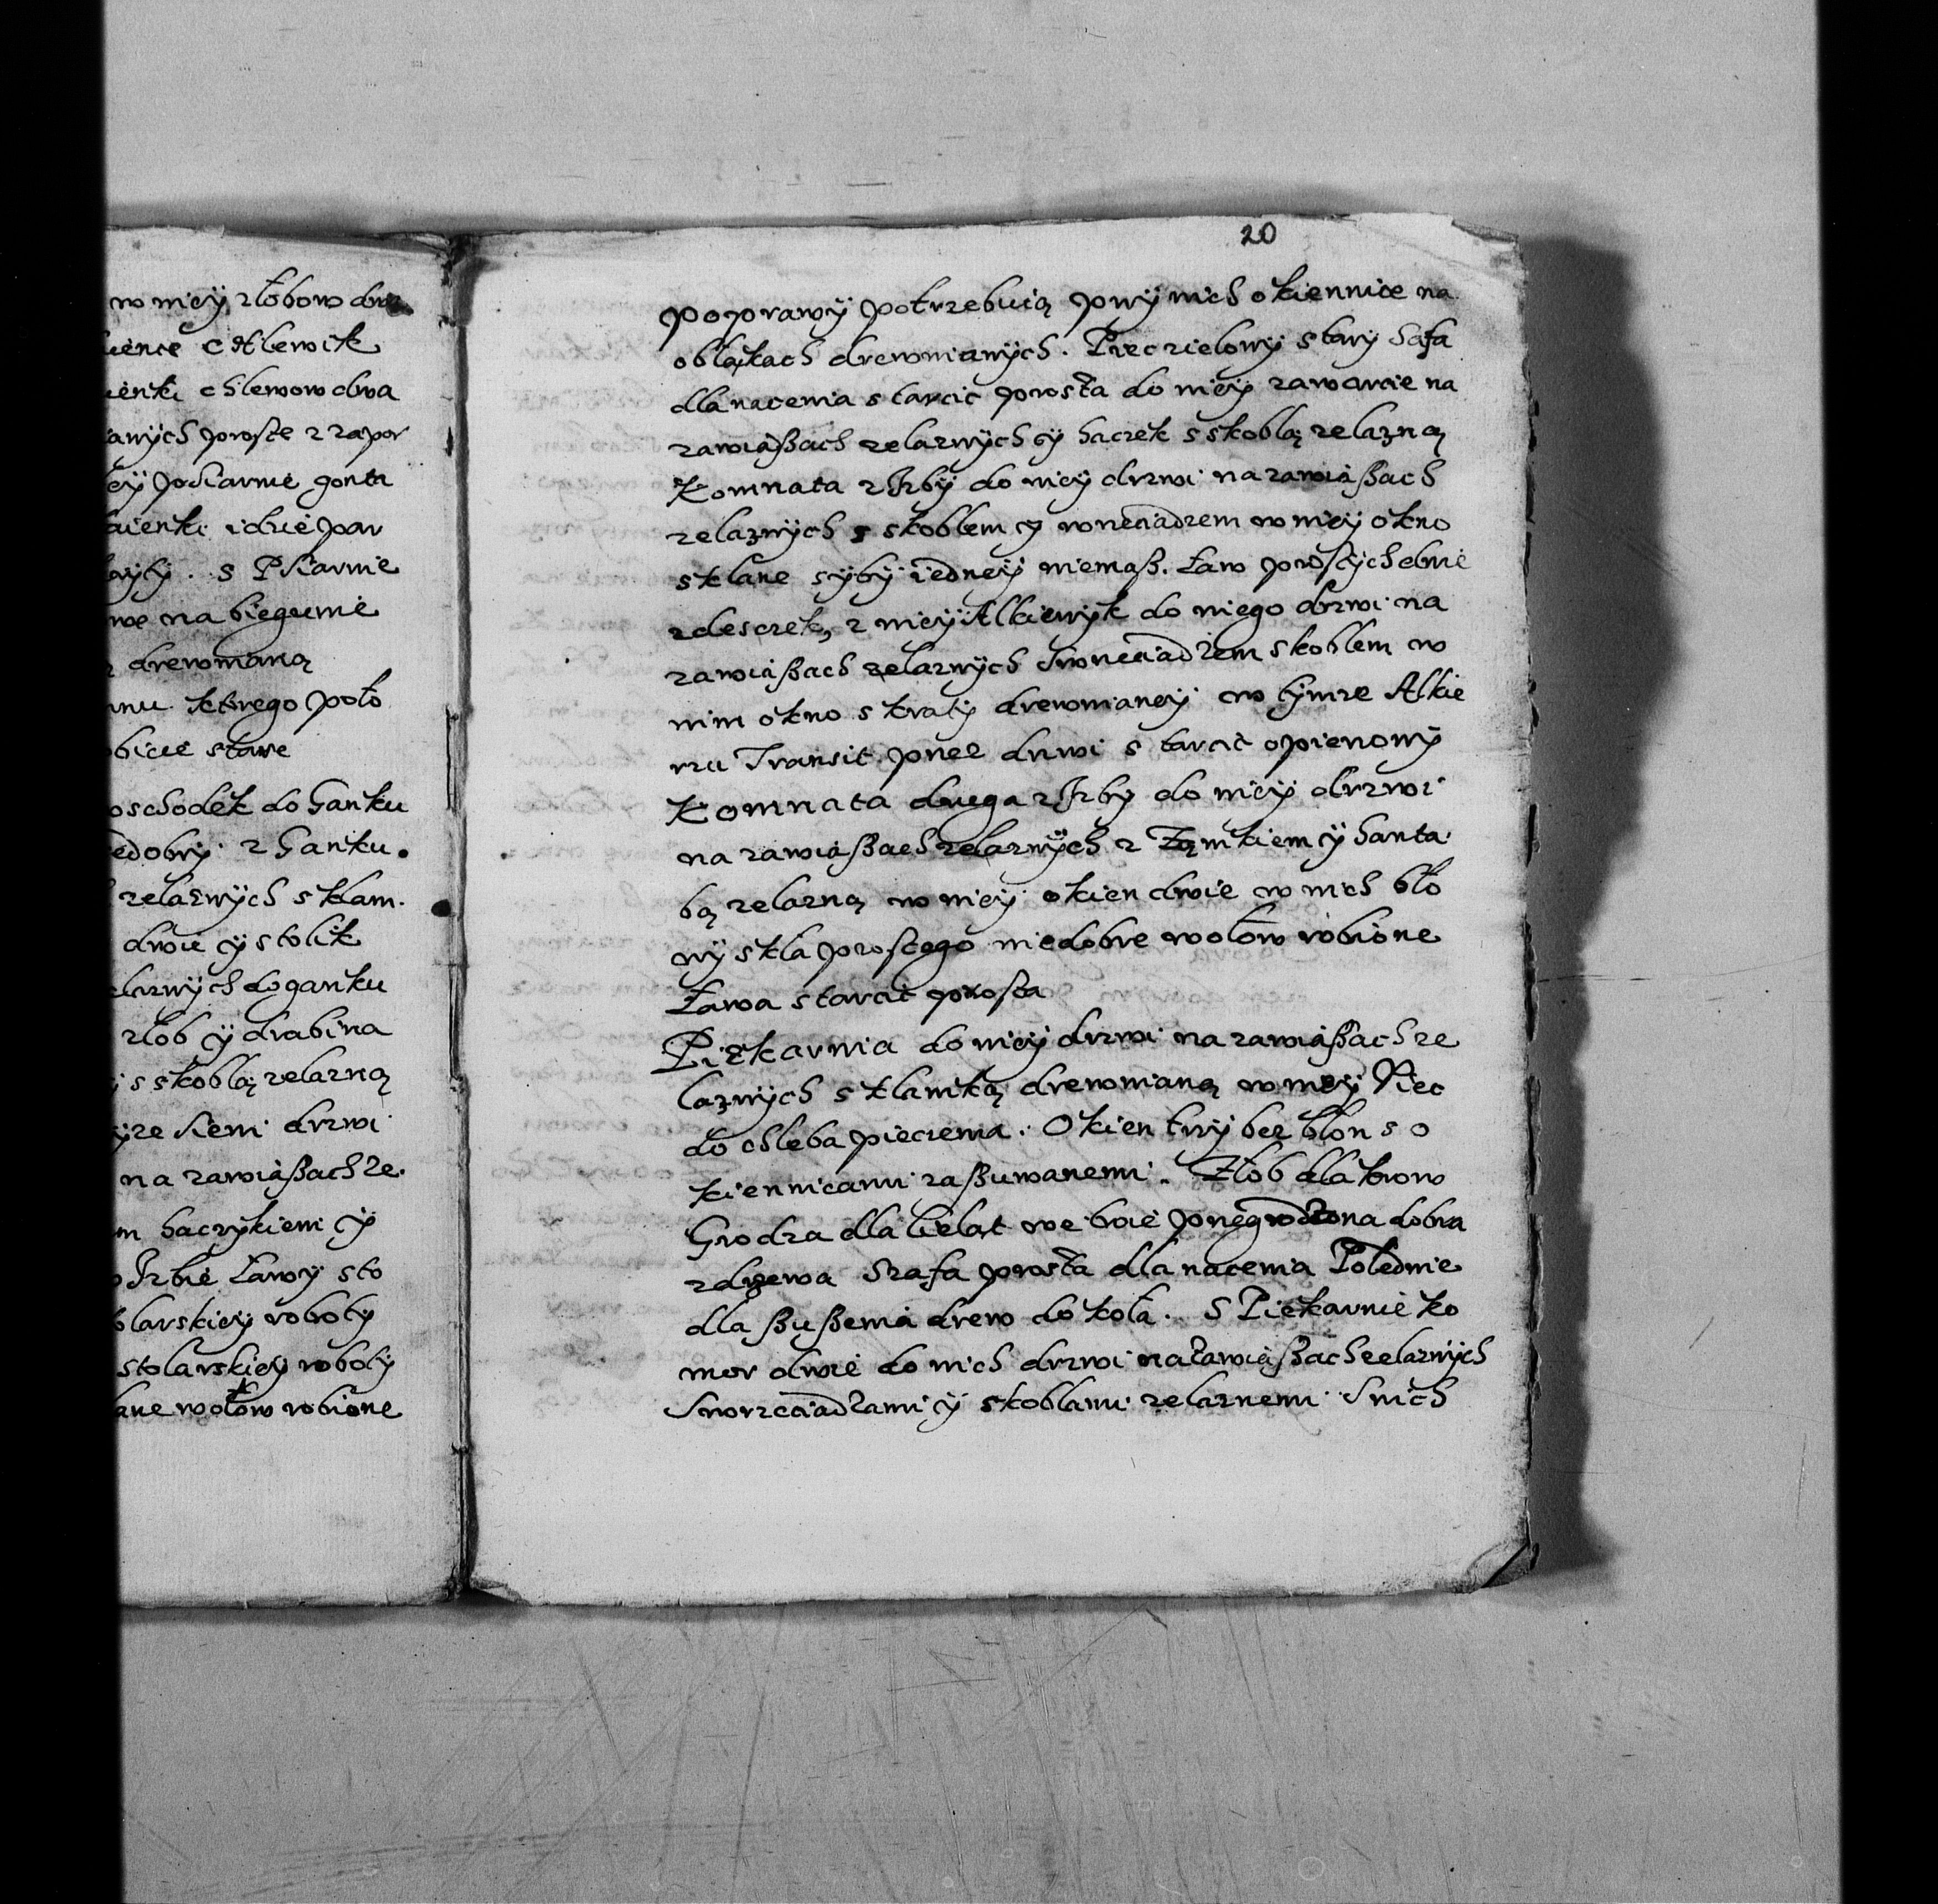 w nieÿ złobow dwa
ience chlewik
ienki chlewow dwa
anÿch proste z zapor
eÿ Psiarnie gonta
aienki idzie par
brÿtÿ. s Psiarnie
we na biegunie
drewnianą
mu ktorego poło
obicie stare
oschodek do Ganku
edobrÿ z Ganku.
zelaznÿch s klam.
dwie ÿ stolik
elaznÿch do ganku
złob ÿ drabina
i s skoblą zelazną
ÿze sieni drzwi
na zawiaßach ze.
m haczykiem ÿ
o Izbie Ławÿ sto
olarskieÿ robotÿ
stolarskieÿ robotÿ
lane wołow robione
20
poprawÿ potrzebuią przÿ nich okiennice na
obłąkach drewnianÿch. Piec zielonÿ starÿ Safa
dla naczenia s tarcic prosta do nieÿ zawarcie na
zawiaßach zelaznÿch ÿ haczek s skoblą zelazną
Komnata z Izbÿ do nieÿ drzwi na zawiaßach
zelaznÿch s skoblem ÿ wrzeciadzem w nieÿ okno
sklane sÿbÿ iedneÿ niemaß. Ław prostÿch dwie
z desczek, z nieÿ Alkierzÿk do niego drzwi na
zawiaßach zelaznÿch s wrzeciadzem skoblem w
nim okno s kratÿ drewnianeÿ w tÿmze Alkie
rzu Transit przez drzwi s tarcic opierzonÿ
Komnata druga z Izbÿ do nieÿ drzwi
na zawiaßach zelaznÿch z Zamkiem ÿ hanta
bą zelazną w nieÿ okien dwie w nich bło
nÿ skla prostego niedobre w ołow robione
Ława s tarcic prosta
Piekarnia do nieÿ drzwi na zawiaßach ze
laznÿch s klamką drewnianą w nieÿ Piec
do chleba pieczenia. Okien trzÿ bez błon s o
kiennicami zaßuwanemi. Złob dla krow
Grodza dla Cieląt we troie przegrodzona dobra
z drzewa Szafa prosta dla naczenia Polednie
dla ßußenia drew do koła. S Piekarnie ko
mor dwie do nich drzwi na zawiaßach zelaznÿch
s wrzeciadzami ÿ skoblami zelaznemi s nich